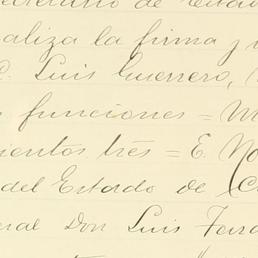 de Estado
aliza la firma y
C. Luis Guerrero,
funciones = M
cientos tres = E. No
del Estado de C
eral Don Luis